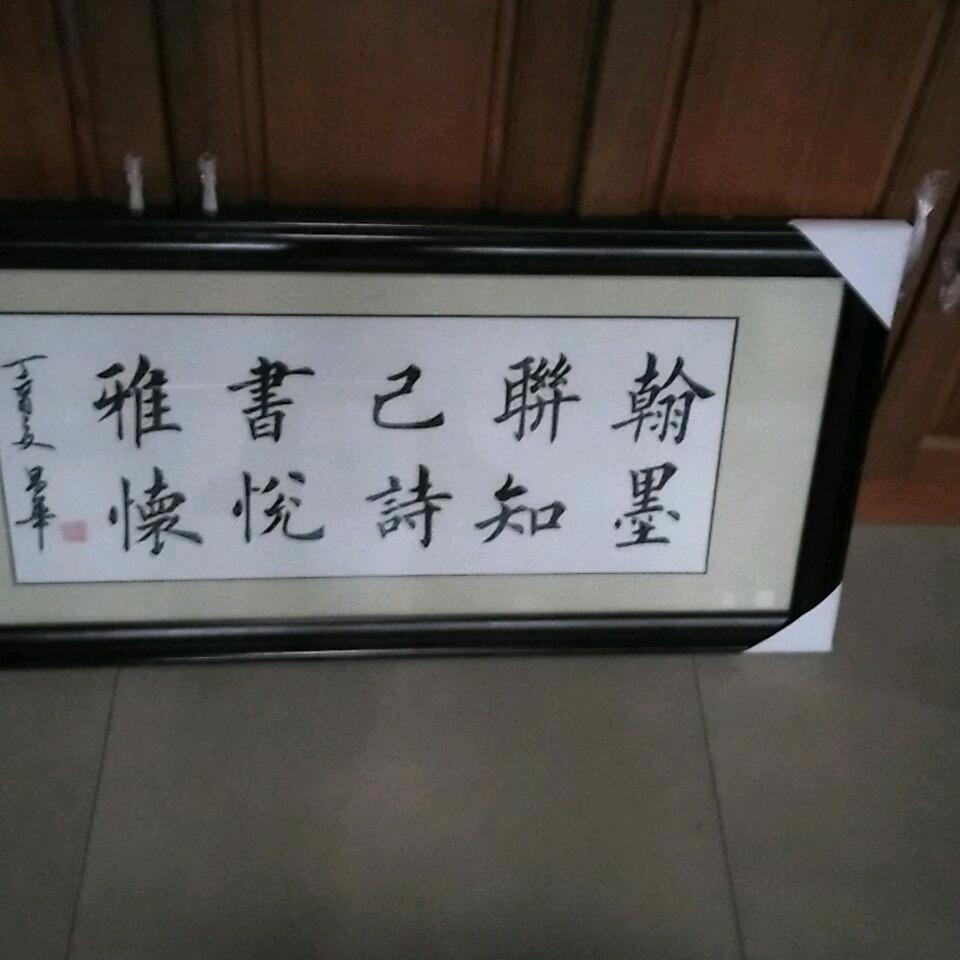 翰墨
聯知
己詩
書悅
雅懷
丁酉夏 昌華